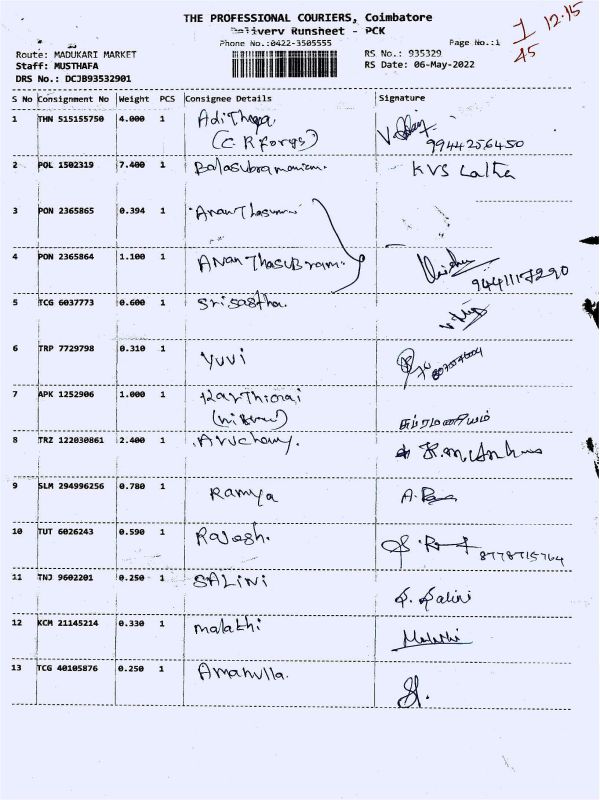 THE PROFESSIONAL COURIERS, Coimbatore
Delivery Runsheet - PCK
Phone No.:0422-3505555
Page No.:1
1/45 12.15
Route: MADUKARI MARKET
Staff: MUSTHAFA
DRS No.: DCJB93532901
RS No.: 935329
RS Date: 06-May-2022
S No Consignment No Weight PCS Consignee Details Signature
1 THN 515155750 4.000 1 Adithya
(C.R Forgs) 9944256450
2 POL 1502319 7.400 1 Balasubramaniam. KVS Latha
3 PON 2365865 0.394 1
4 PON 2365864 1.100 1 AnanThasubram. 9441117290
5 TCG 6037773 0.600 1 Srisastha.
6 TRP 7729798 0.310 1 Yuvi
7 APK 1252906 1.000 1 சுப்ரமணியம்
8 TRZ 122030861 2.400 1
9 SLM 294996256 0.780 1 Ramya
10 TUT 6026243 0.590 1 Rajesh. 8778715764
11 TNJ 9602201 0.250 1 SALINI S. Salini
12 KCM 21145214 0.330 1 malathi Malathi
13 TCG 40105876 0.250 1 Amanulla.